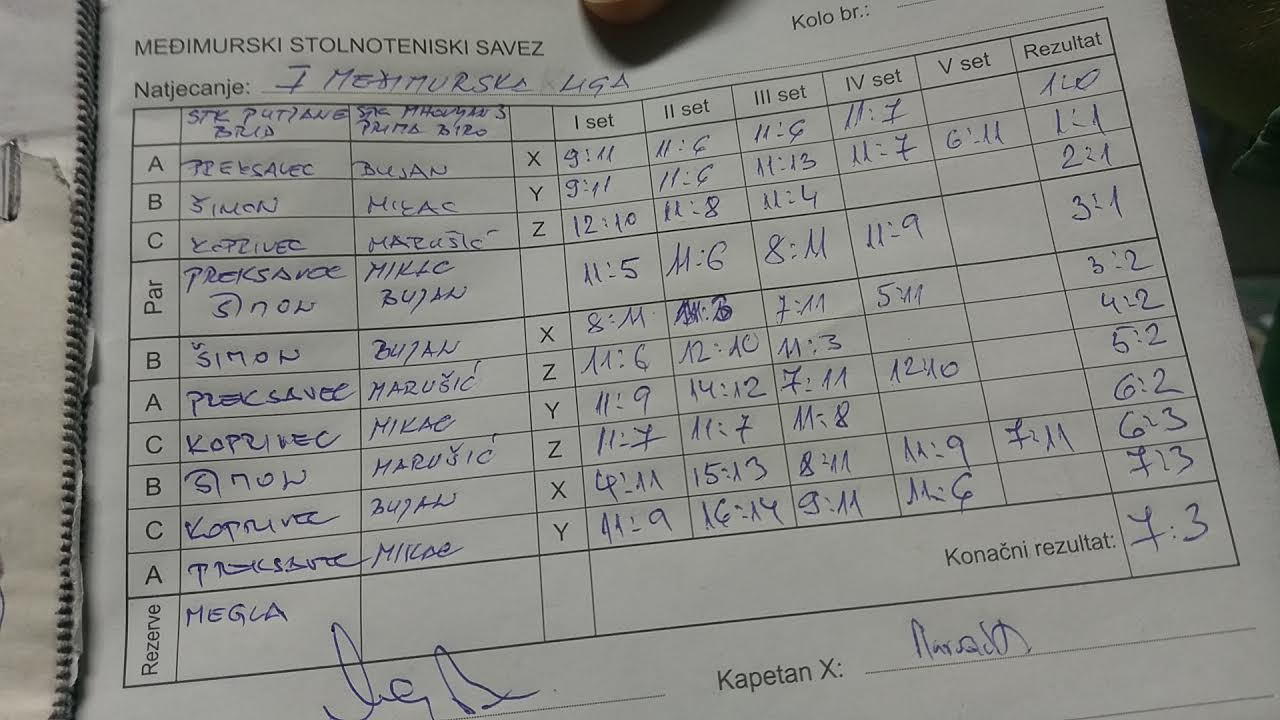 Kolo br.:
MEĐIMURSKI STOLNOTENISKI SAVEZ
Natjecanje: I MEĐIMURSKA LIGA
STK PUTJANE BRID STK 3 PRIMA BIRO I set II set III set IV set V set Rezultat
A PREKSAVEC BUJAN X 9:11 11:6 11:6 11:7 1:0
B ŠIMON MIKAC Y 9:11 11:6 11:13 11:7 6:11 1:1
C KOPRIVEC MARUŠIĆ Z 12:10 11:8 11:4 2:1
Par PREKSAVEC MIKAC 11:5 11:6 8:11 11:9 3:1
ŠIMON BUJAN
B ŠIMON BUJAN X 8:11 7:11 5:11 3:2
A PREKSAVEC MARUŠIĆ Z 11:6 12:10 11:3 4:2
C KOPRIVEC MIKAC Y 11:9 14:12 7:11 12:10 5:2
B ŠIMON MARUŠIĆ Z 11:7 11:7 11:8 6:2
C KOPRIVEC BUJAN X 4:11 15:13 8:11 11:9 7:11 6:3
A PREKSAVEC MIKAC Y 11:9 16:14 9:11 11:6 7:3
Rezerve MEGLA
Konačni rezultat: 7:3
Kapetan X: